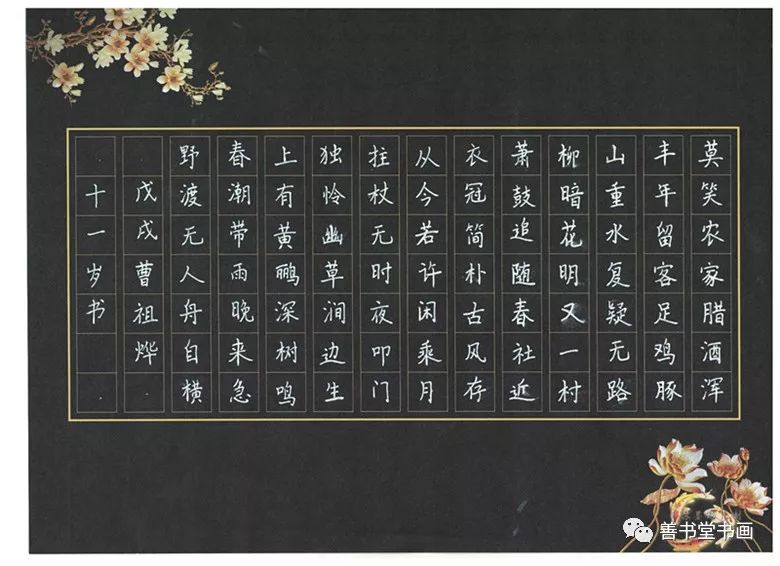 莫笑农家腊酒浑
丰年留客足鸡豚
山重水复疑无路
柳暗花明又一村
萧鼓追随春社近
衣冠简朴古风存
从今若许闲乘月
拄杖无时夜叩门
独怜幽草涧边生
上有黄鹂深树鸣
春潮带雨晚来急
野渡无人舟自横
戊戌曹祖烨
十一岁书
善书堂书画